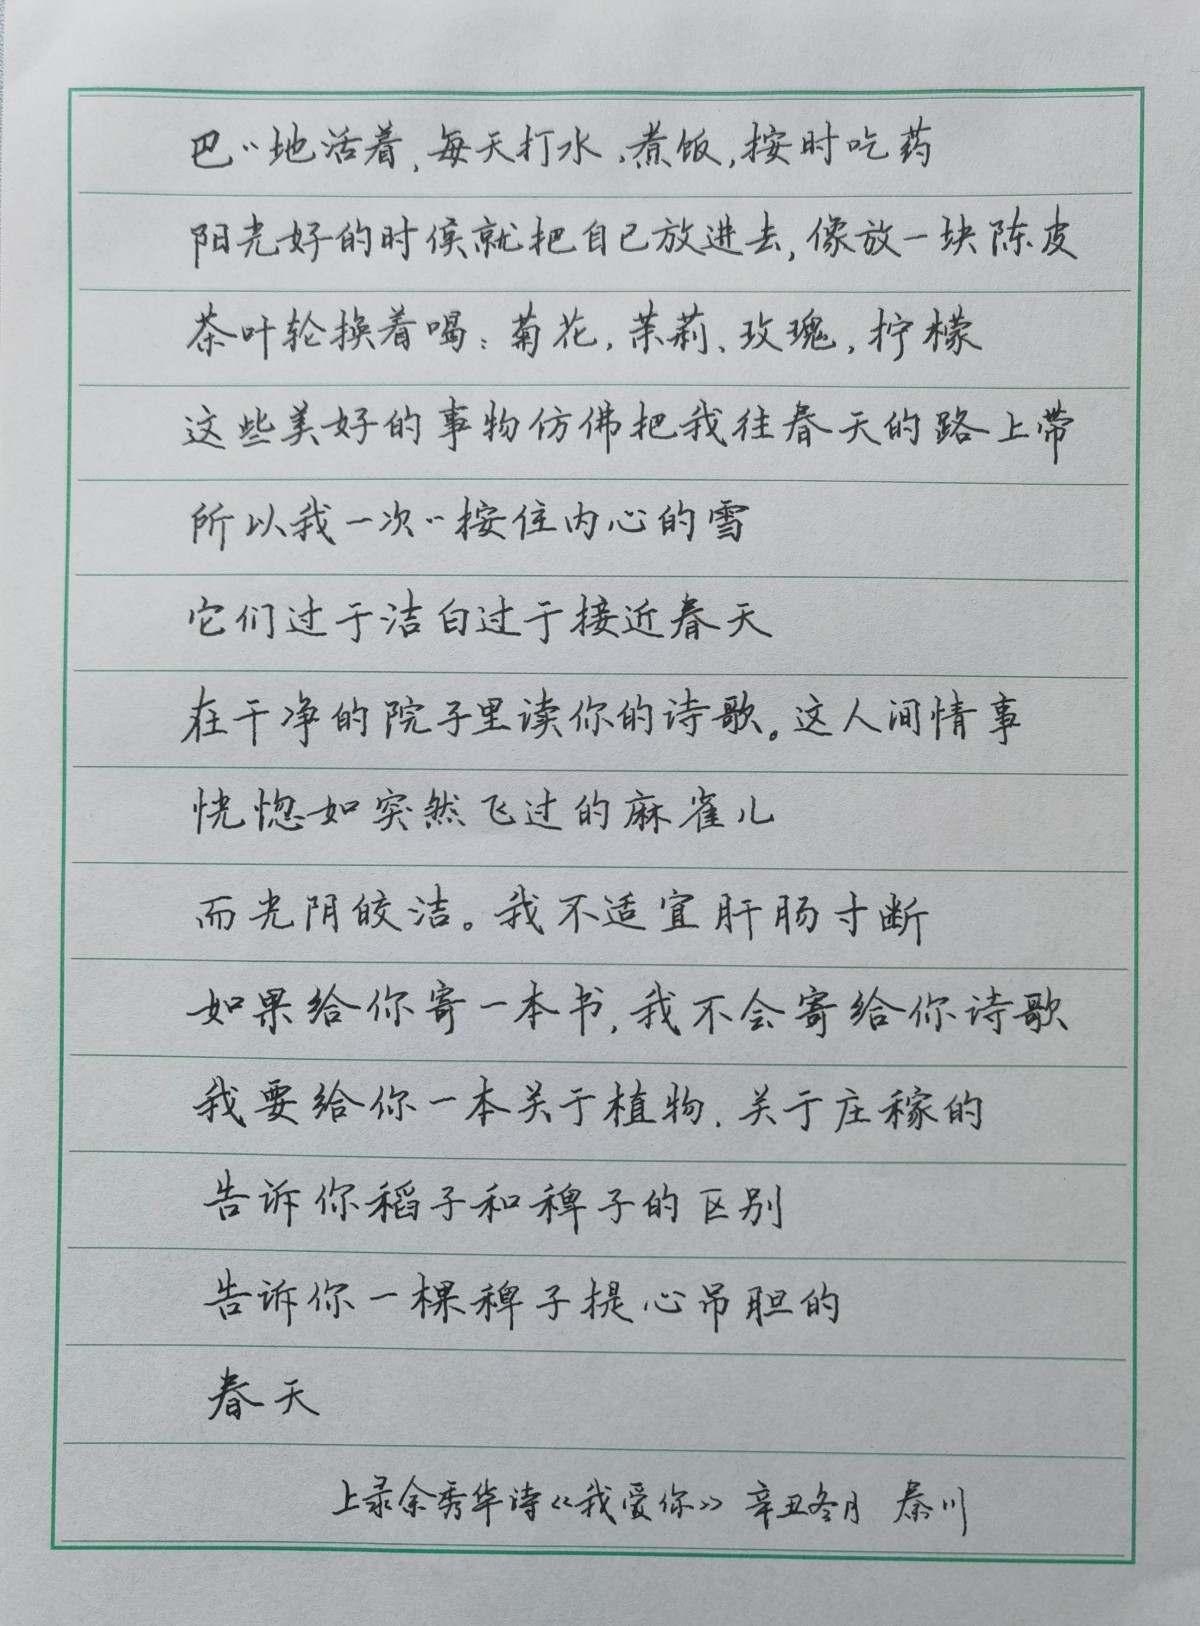 巴〃地活着,每天打水,煮饭,按时吃药
阳光好的时候就把自己放进去,像放一块陈皮
茶叶轮换着喝:菊花,茉莉、玫瑰,柠檬
这些美好的事物仿佛把我往春天的路上带
所以我一次〃按住内心的雪
它们过于洁白过于接近春天
在干净的院子里读你的诗歌。这人间情事
恍惚如突然飞过的麻雀儿
而光阴皎洁。我不适宜肝肠寸断
如果给你寄一本书,我不会寄给你诗歌
我要给你一本关于植物,关于庄稼的
告诉你稻子和稗子的区别
告诉你一棵稗子提心吊胆的
春天
上录余秀华诗《我爱你》 辛丑冬月 秦川